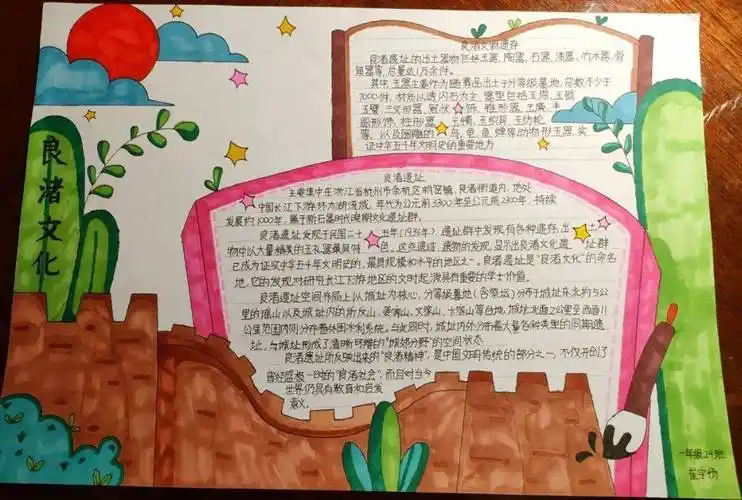 良渚文化
良渚文物遗存
良渚遗址的出土器物包括玉器、陶器、石器、漆器、竹木器、骨
角器等,总量达1万余件。
其中,玉器主要作为随葬品出土于分等级墓地,总数不少于
7000件,材质以透闪石为主,器型包括玉琮、玉钺
玉璧、三叉形器、冠状 饰、锥形器、玉璜、
圆形饰、柱形器、玉镯、玉织具、玉纺轮
等,以及圆雕的 鸟、龟、鱼、蝉等动物形玉器,实
证中华五千年文明史的重要地方
良渚遗址
主要集中在浙江省杭州市余杭区瓶窑镇、良渚街道内,地处
中国长江下游环太湖流域,年代为公元前3300年至公元前2300年,持续
发展约1000年,属于新石器时代晚期文化遗址群。
良渚遗址发现于民国二十 五年(1936年),遗址群中发现有各种遗存,出
物中以大量精美的玉礼器最具特 色。这些遗迹、遗物的发现,显示出良渚文化遗 址群
已成为证实中华五千年文明史的、最具规模和水平的地区之一。良渚遗址是“良渚文化”的命名
地,它的发现对研究长江下游地区的文明起源具有重要的学术价值。
良渚遗址空间布局上以城址为核心,分等级墓地(含祭坛)分布于城址东北约5公
里的瑶山以及城址内的反山、姜家山、文家山、卞家山等台地,城址北面2公里至西面11
公里范围内则分布着外围水利系统。与此同时,城址内外分布着大量各种类型的同期遗
址,与城址形成了清晰可辨的“城郊分野”的空间状态
良渚遗址所反映出来的“良渚精神”,是中国文明传统的部分之一,不仅开创了
曾经盛极一时的“良渚社会”,而且对当今
世界仍具有教育和启发
意义。
一年级24班